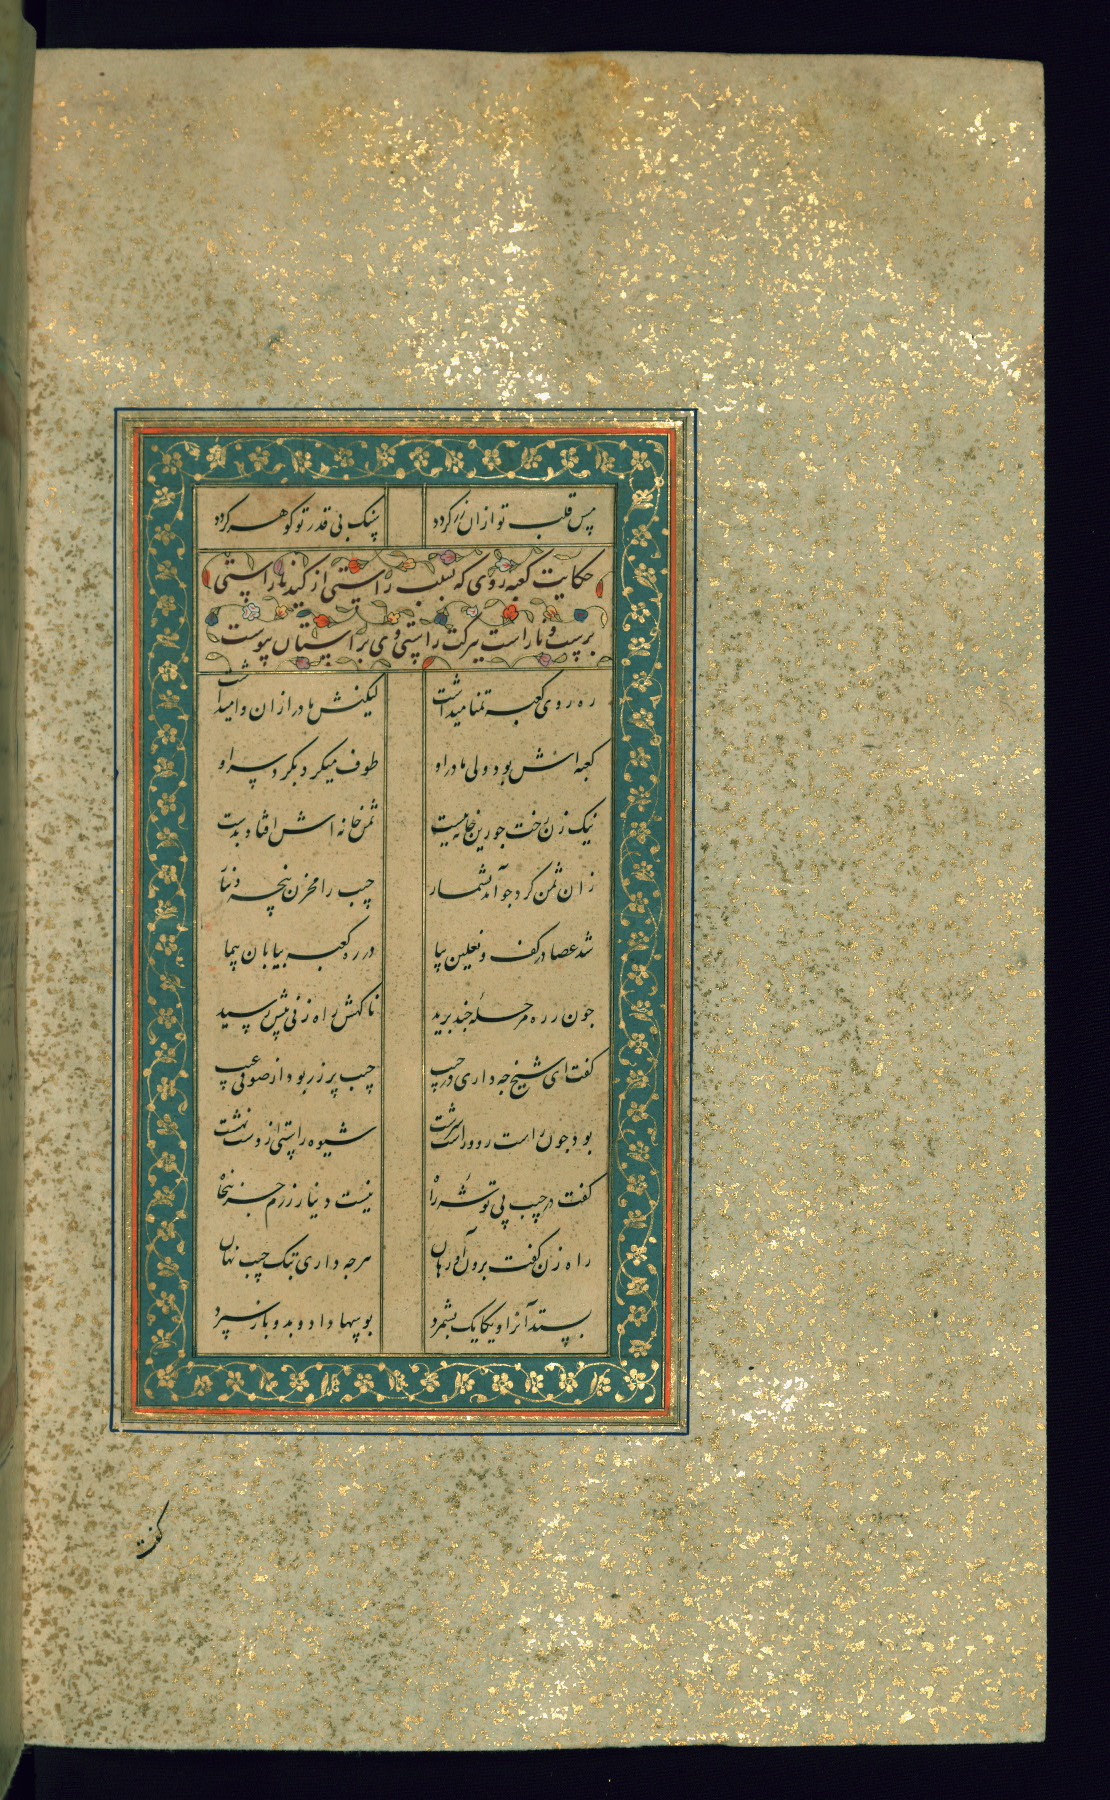 مس قلب تو ازان زر کرده سنک بی قدر تو کوهر کرده
حکایت کعبه روی که بسبب راستی از کید ناراستی
برست و ناراست ببرکت راستی وی براستان پیوست
ره روی کعبه تمنا میداشت لیکنش مادر ازان وامیداشت
کعبه اش بود ولی مادر او طوف میکرد بکرد سر او
نیک زن رخت چو زین خانه ببست ثمن خانه اش افتاد بدست
زان ثمن کرد جو آمد بشمار جیب را مخزن پنجه دینار
شد عصا در کف و نعلین بپا در ره کعبه بیابان پیما
جون در ره مرحلهٔ جند برید ناکهش راه زنی پیش رسید
کفت ای شیخ جه داری در جیب جیب پر زر بود از صوفی عیب
بود جون راست رو و راست سرشت شیوه راستی از دست نهشت
کفت در جیب پی توشه راه نیست دینار زرم جز پنجاه
راه زن کفت برون آور هان هرجه داری بتک جیب نهان
بستد آنرا و یکایک بشمرد بوسها داد و بدو باز سپرد
کفت